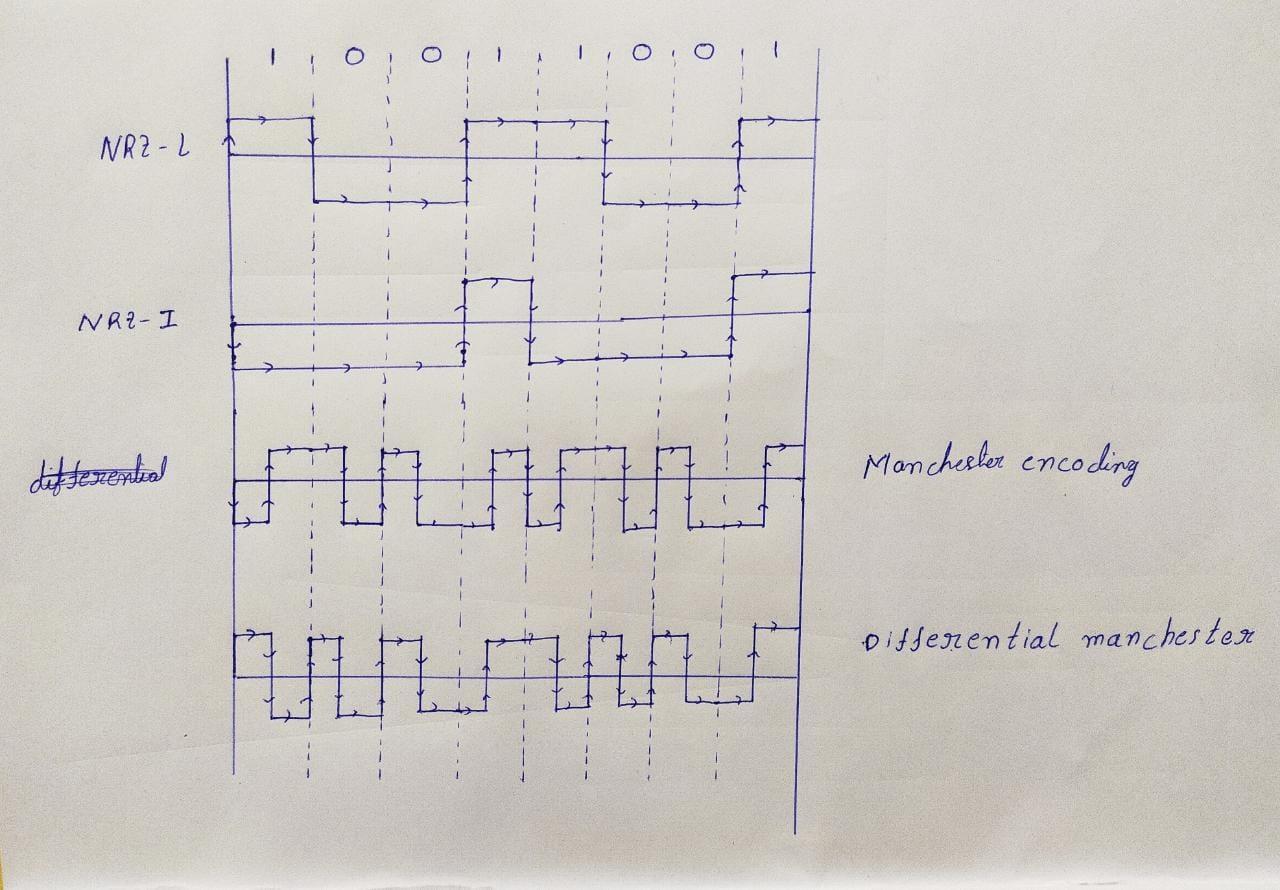 1 0 0 1 1 0 0 1
NRZ-L
NRZ-I
differential
Manchester encoding
Differential manchester